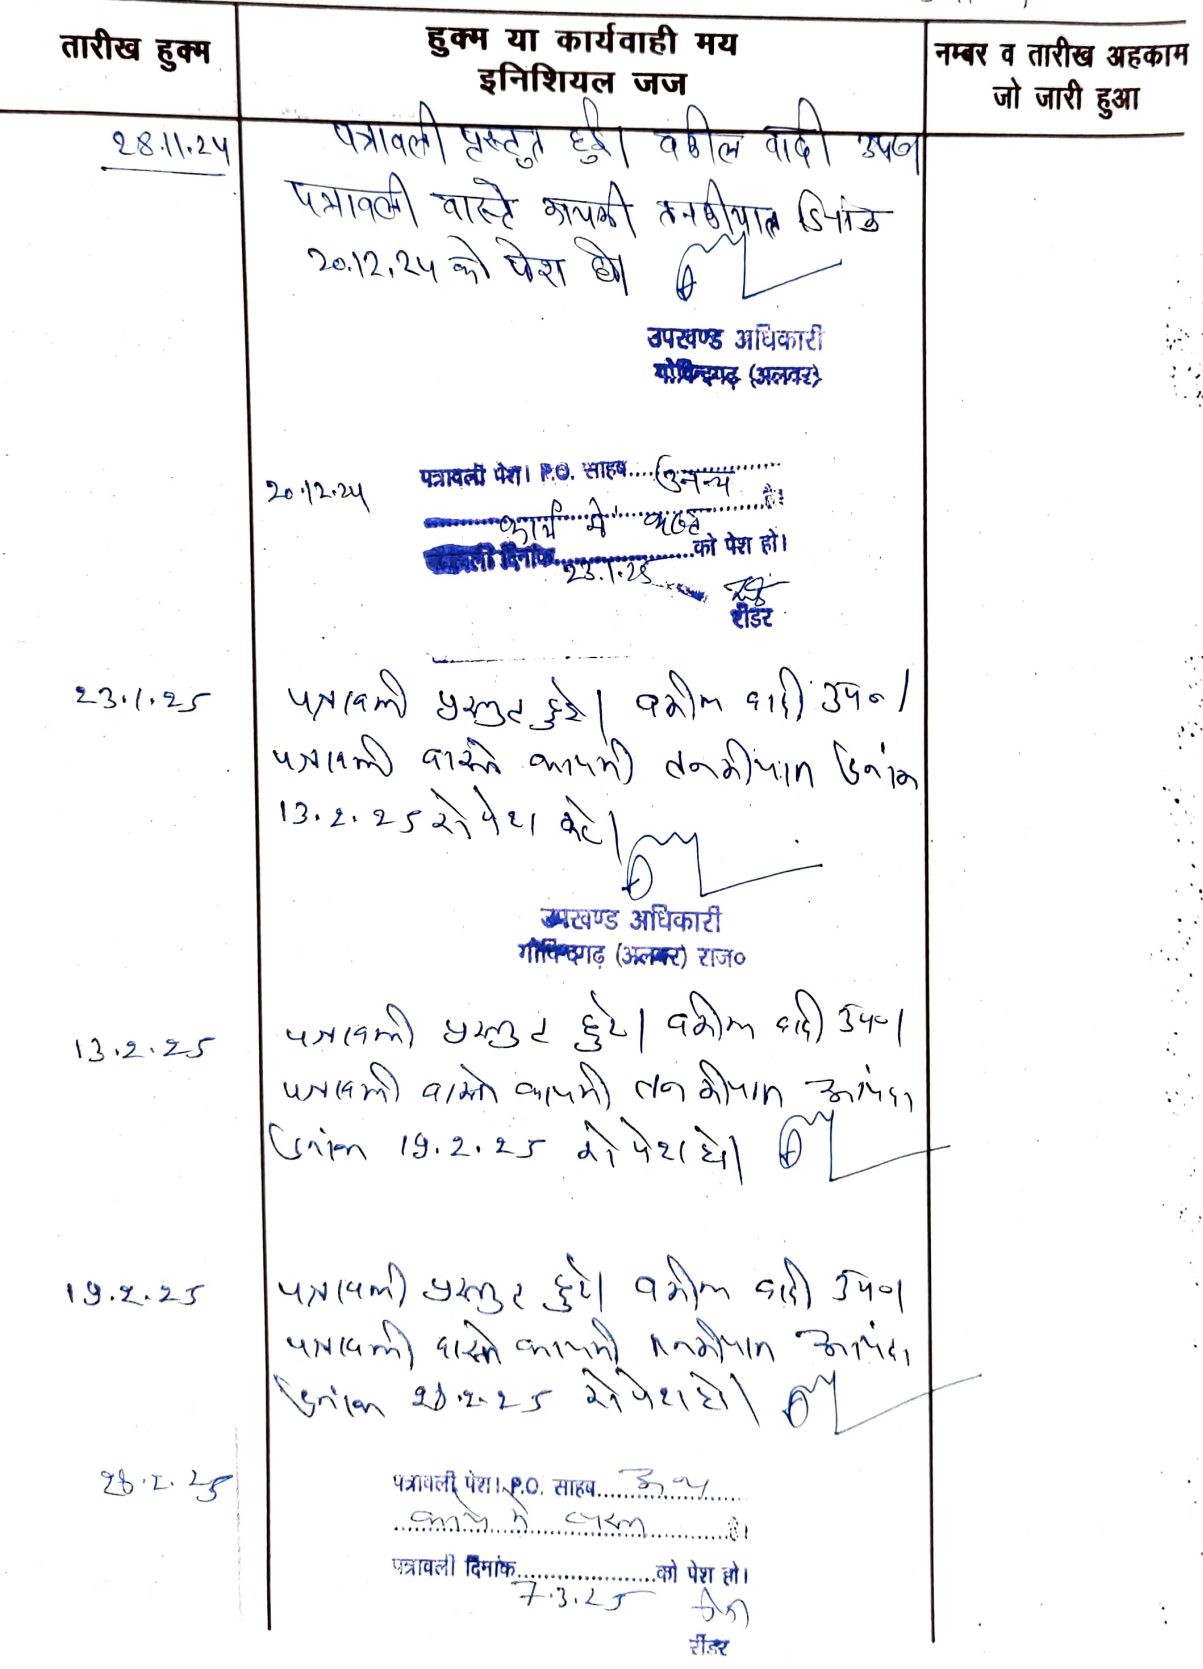 तारीख हुक्म
हुक्म या कार्यवाही मय
इनिशियल जज
नम्बर व तारीख अहकाम
जो जारी हुआ
28.11.24
पत्रावली प्रस्तुत हुई। वकील वादी उप०
पत्रावली वास्ते कायमी तनकीयात दिनांक
20.12.24 को पेश हो।
उपखण्ड अधिकारी
गोविन्दगढ़ (अलवर)
20.12.24
पत्रावली पेश। P.O. साहब....अन्य
कार्य में व्यस्त है।
पत्रावली दिनांक 23.1.25 को पेश हो।
रीडर
23.1.25
पत्रावली प्रस्तुत हुई। वकील वादी उप०।
पत्रावली वास्ते कायमी तनकीयात दिनांक
13.2.25 को पेश हो।
उपखण्ड अधिकारी
गोविन्दगढ़ (अलवर) राज०
13.2.25
पत्रावली प्रस्तुत हुई। वकील वादी उप०।
पत्रावली वास्ते कायमी तनकीयात आयंदा
दिनांक 19.2.25 को पेश हो।
19.2.25
पत्रावली प्रस्तुत हुई। वकील वादी उप०।
पत्रावली वास्ते कायमी तनकीयात आयंदा
दिनांक 28.2.25 को पेश हो।
28.2.25
पत्रावली पेश। P.O. साहब....अन्य
कार्य में व्यस्त है।
पत्रावली दिनांक 7.3.25 को पेश हो।
रीडर